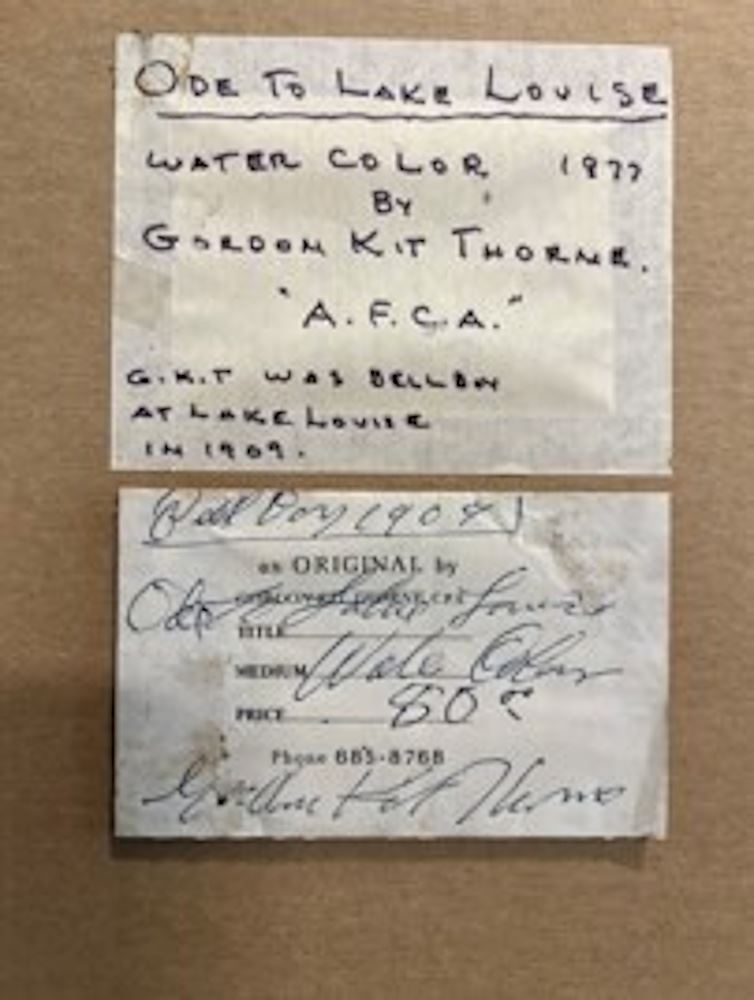 ODE TO LAKE LOUISE
WATER COLOR 1977
BY
GORDON KIT THORNE.
"A.F.C.A."
G.K.T WAS BELLBOY
AT LAKE LOUISE
IN 1909.
Bell Boy 1909
an ORIGINAL by
GORDON KIT THORNE,
Ode to Lake Louise
TITLE
MEDIUM Water Color
PRICE
Phone 685-8768
Gordon Kit Thorne